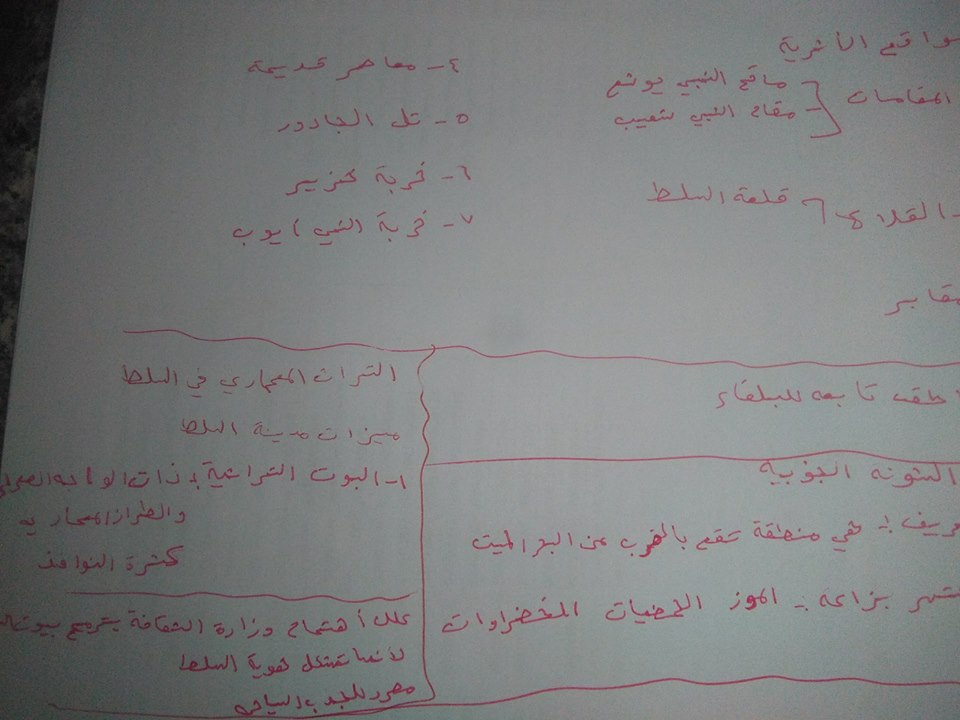 مواقع الأثرية
المقامات
ماقع النبي يوشع
مقام النبي شعيب
القلاع
قلعة السلط
مقابر
٤- معاصر قديمة
٥- تل الجادور
٦- خربة خزير
٧- خربة النبي ايوب
تابعه للبلقاء
الشونه الجنوبيه
هي منطقة تقع بالقرب من البحر الميت
بزراعه :- الموز الحمضيات الخضراوات
التراث المعماري في السلط
ميزات مدينة السلط
١- البوت التراثية ذات الواجه
والطراز المعماريه
كثرة النوافذ
علل أهتمام وزارة الثقافة بترميم بيوت
لأنها تشكل هوية السلط
مصدر للجذب السياحي